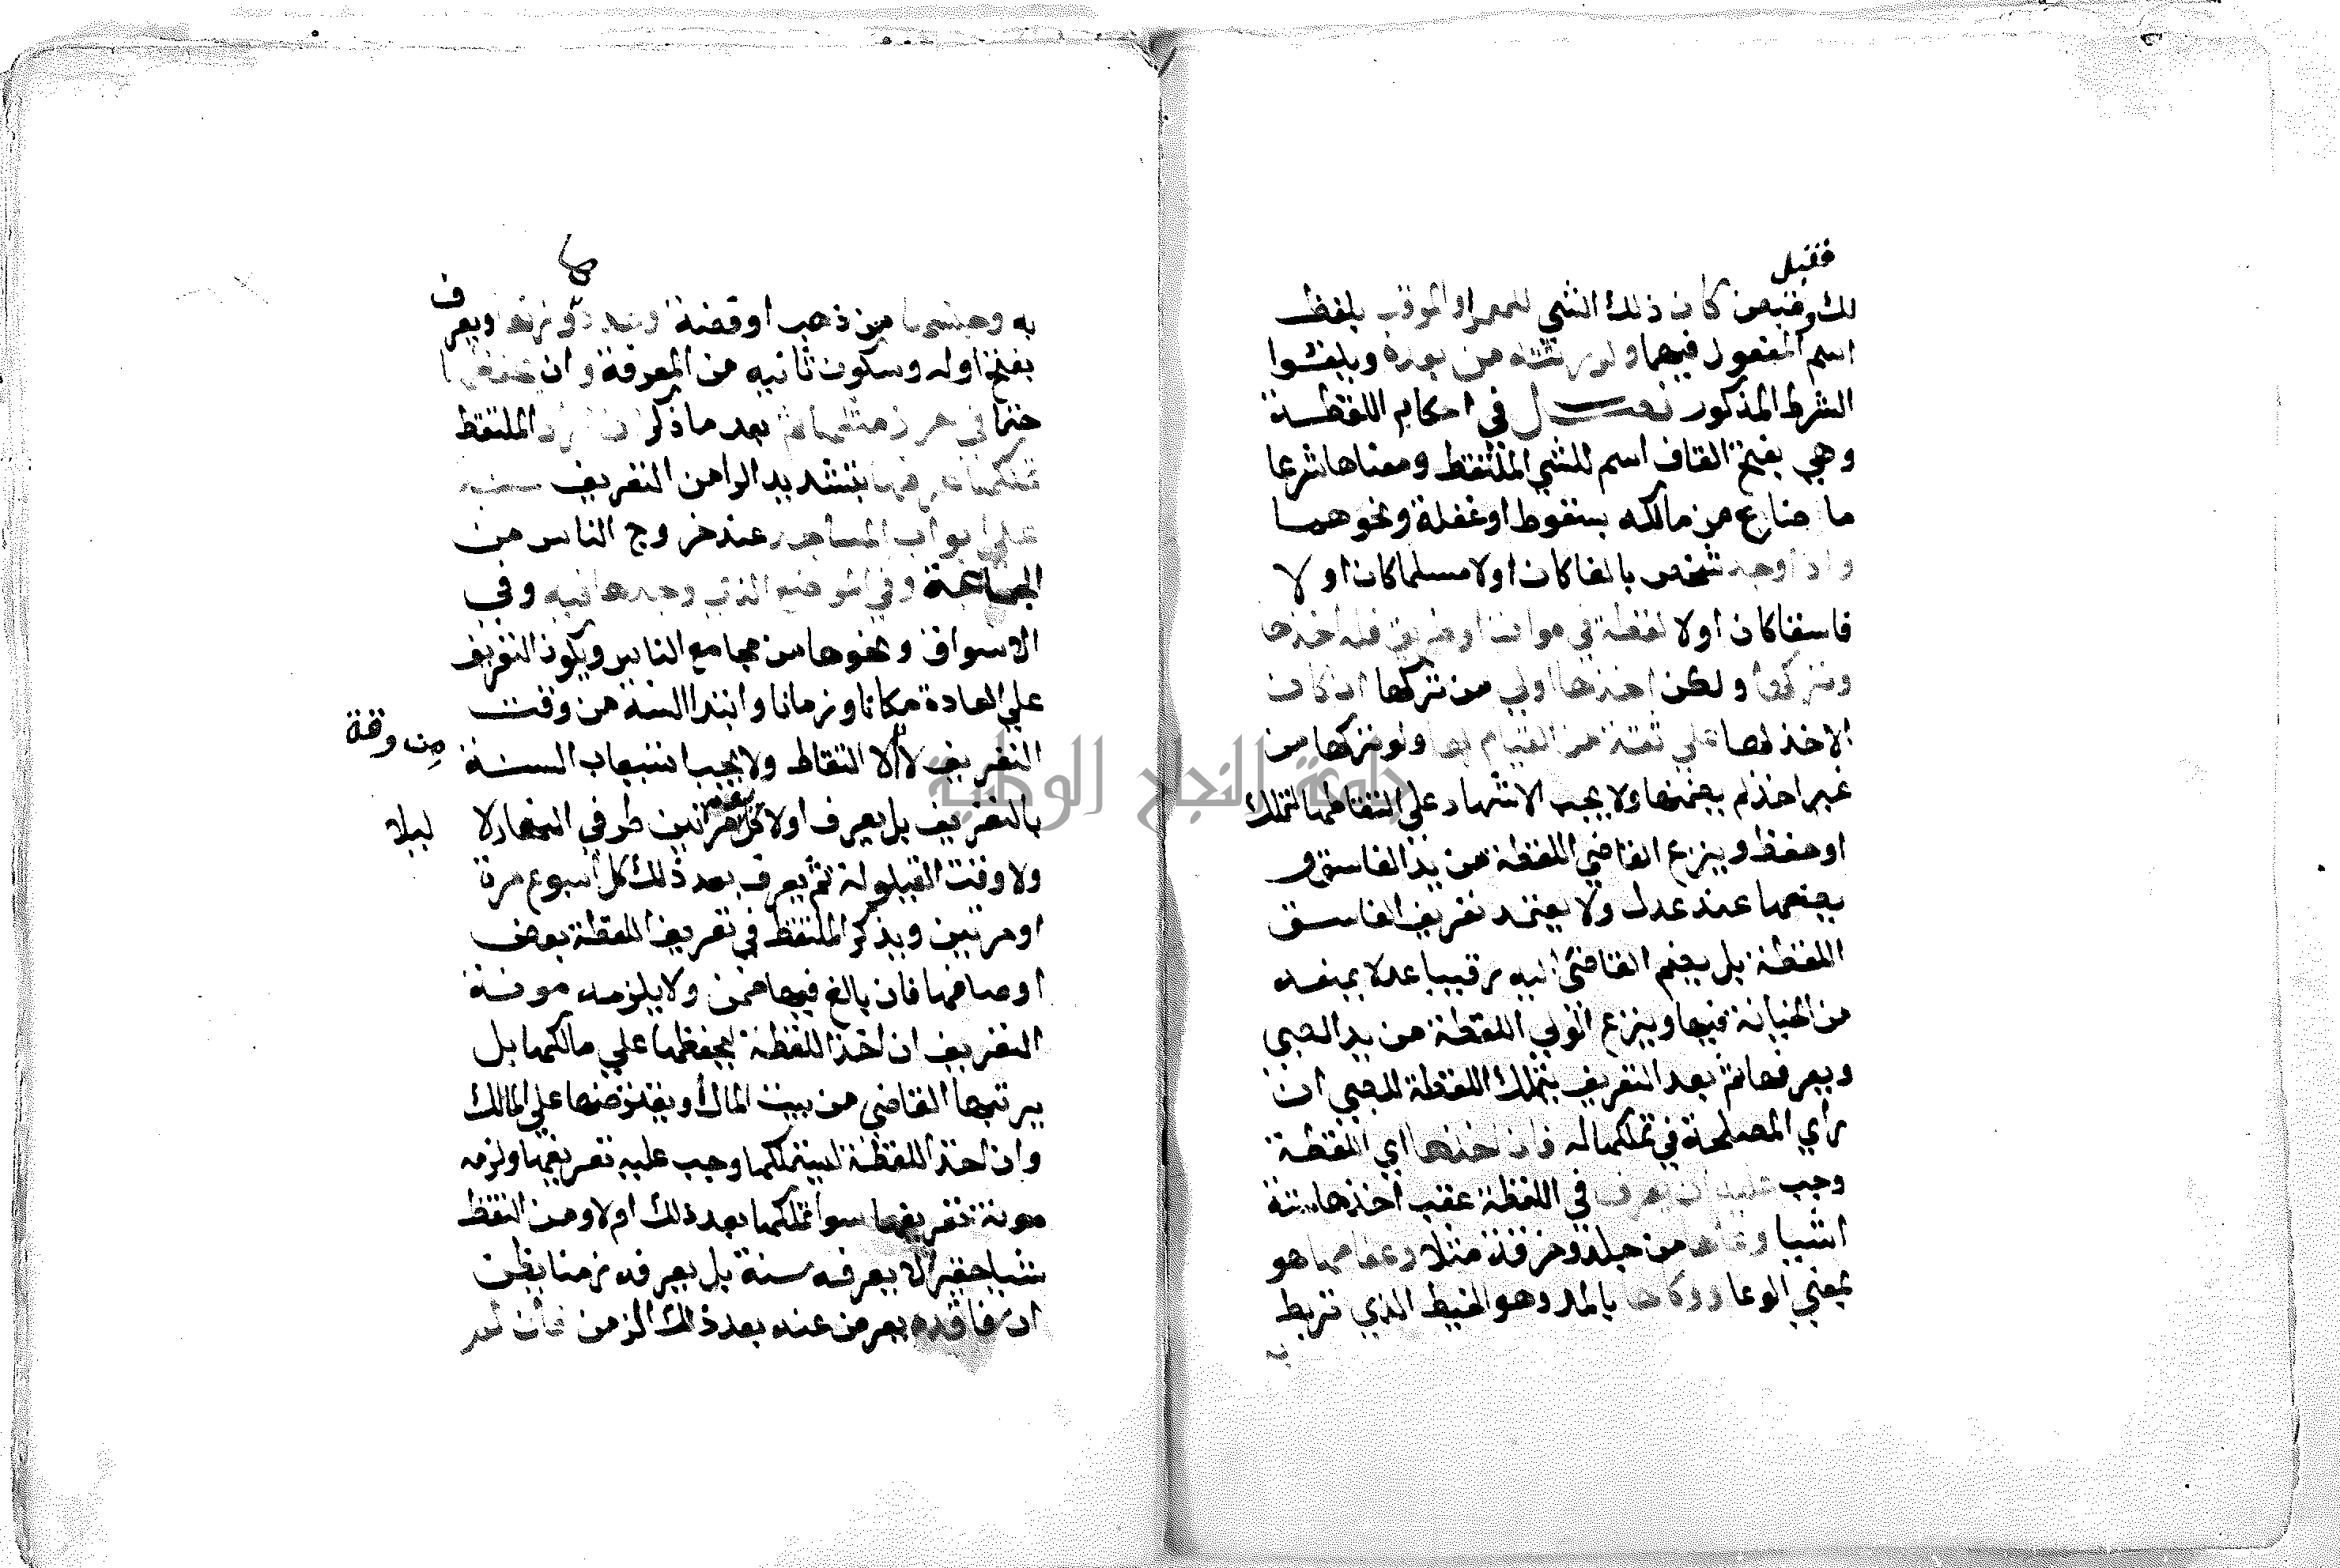 فقبل
لك وقته من كان ذلك الشي للمعمر او المرقب بلفظ
اسم المفعول فيهما ولورثته من بعده ويلغوا
الشرط المذكور فصل في احكام اللقطة
وهي بفتح القاف اسم للشي الملتقط ومعناها شرعا
ما ضاع من مالكه بسقوط او غفلة ونحوهما
واذا وجد شخص بالغا كان اولا مسلما كان او لا
فاسقا كان اولا لقطة في موات او طريق فله اخذها
وتركها ولكن اخذها اولي من تركها ان كان
الاخذ لها علي ثقة من القيام بها ولو تركها من
غير اخذ لم يضمنها ولا يجب الاشهاد علي التقاطها لتملك
او حفظ وينزع القاضي اللقطة من يد الفاسق و
يضعها عند عدل ولا يعتمد تعريف الفاسق
اللقطة بل يضم القاضي اليه رقيبا عدلا يمنعه
من الخيانة فيها وينزع الولي اللقطة من يد الصبي
ويعرفها ثم بعد التعريف يتملك اللقطة للصبي ان
راي المصلحة في تملكها له فان اخذها اي اللقطة
وجب عليه ان يعرف في اللقطة عقب اخذها ستة
اشيا وعاها من جلد وخرقة مثلا وعفاصها هو
بمعني الوعا ووكاها بالمد وهو الخيط الذي تربط
به
ها
به وجنسها من ذهب او فضة وعددها ووزنها ويعرف
بفتح اوله وسكون ثانيه من المعرفة وان يحفظها
حتما في حرز مثلها ثم بعد ما ذكر ان اراد الملتقط
تملكها عرفها بتشديد الرا من التعريف سنة
علي ابواب المساجد عند خروج الناس من
الجماعة وفي الموضع الذي وجدها فيه وفي
الاسواق ونحوها من مجامع الناس ويكون التعريف
علي العادة مكانا وزمانا وابتدا السنة من وقت
التعريف لا الالتقاط ولا يجب استيعاب السنة
من وقة
بالتعريف بل يعرف اولا كل يوم مرتين طرفي النهار لا
ليلا
ولا وقت القيلولة ثم يعرف بعد ذلك كل اسبوع مرة
او مرتين ويذكر الملتقط في تعريف اللقطة بعض
اوصافها فان بالغ فيها ضمن ولا يلزمه مونة
التعريف ان اخذ اللقطة ليحفظها علي مالكها بل
يرتبها القاضي من بيت المال او يقترضها علي المالك
وان اخذ اللقطة ليتملكها وجب عليه تعريفها ولزمه
مونة تعريفها سوا تملكها بعد ذلك ام لا ومن التقط
شيا حقيرا لا يعرفه سنة بل يعرفه زمنا يظن
ان فاقده يعرض عنه بعد ذلك الزمن فان لم
جامعة النجاح الوطنية